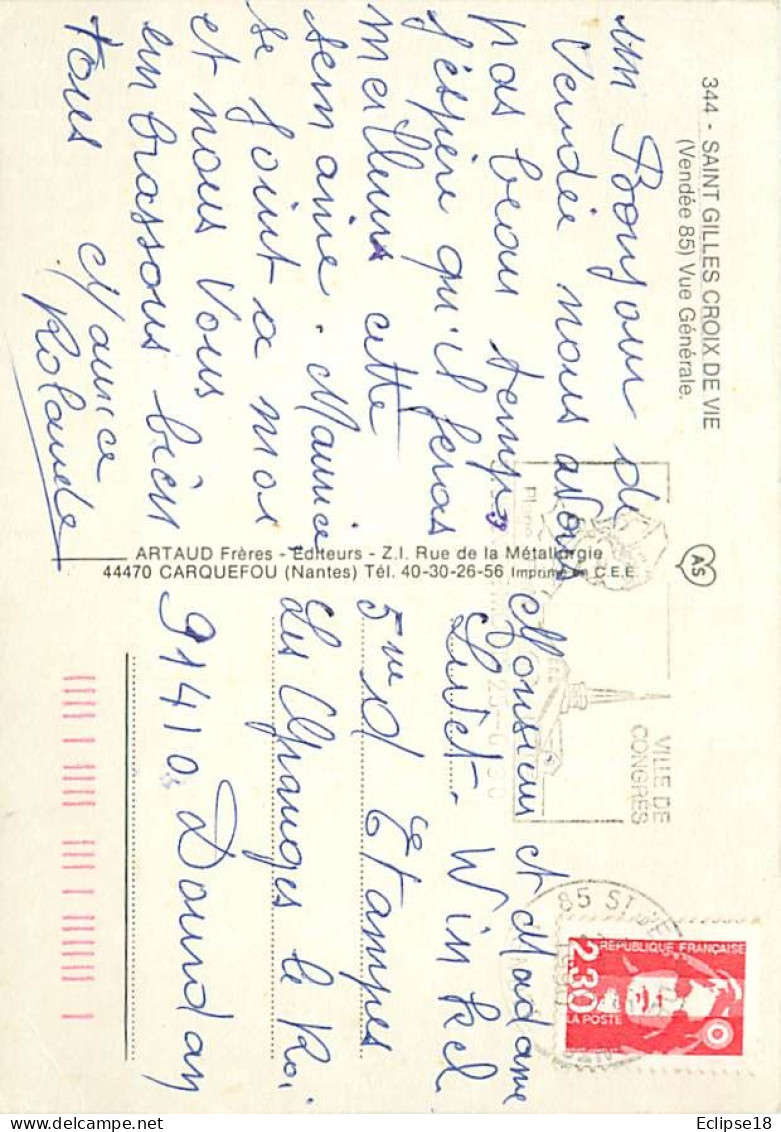 344 - SAINT GILLES CROIX DE VIE
(Vendée 85) Vue Générale.
un Bonjour de
Vendée nous avons
pas beau temps
j'espère qu'il feras
meilleur cette
semaine. Maurice
se joint a moi
et nous Vous
embrassons bien
tous
Maurice
Rolande
ARTAUD Frères - Editeurs - Z.I. Rue de la Métallurgie
44470 CARQUEFOU (Nantes) Tél. 40-30-26-56 Imprimé en C.E.E.
AS
VILLE DE
CONGRÈS
85 ST
RÉPUBLIQUE FRANÇAISE
2,30
LA POSTE
Monsieur et Madame
Livet. Winkel
5 d Etampes
Les Granges le Roi
91410 Dourdan
Eclipse18